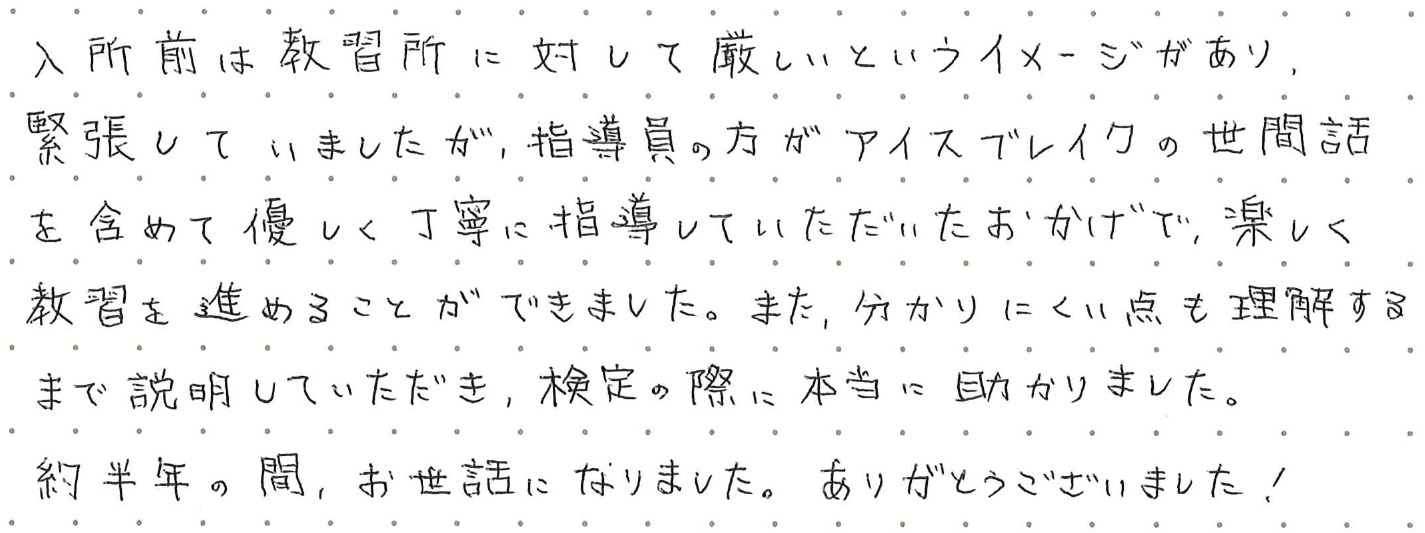 入所前は教習所に対して厳しいというイメージがあり,
緊張していましたが,指導員の方がアイスブレイクの世間話
を含めて優しく丁寧に指導していただいたおかげで,楽しく
教習を進めることができました。また,分かりにくい点も理解する
まで説明していただき,検定の際に本当に助かりました。
約半年の間,お世話になりました。ありがとうございました!